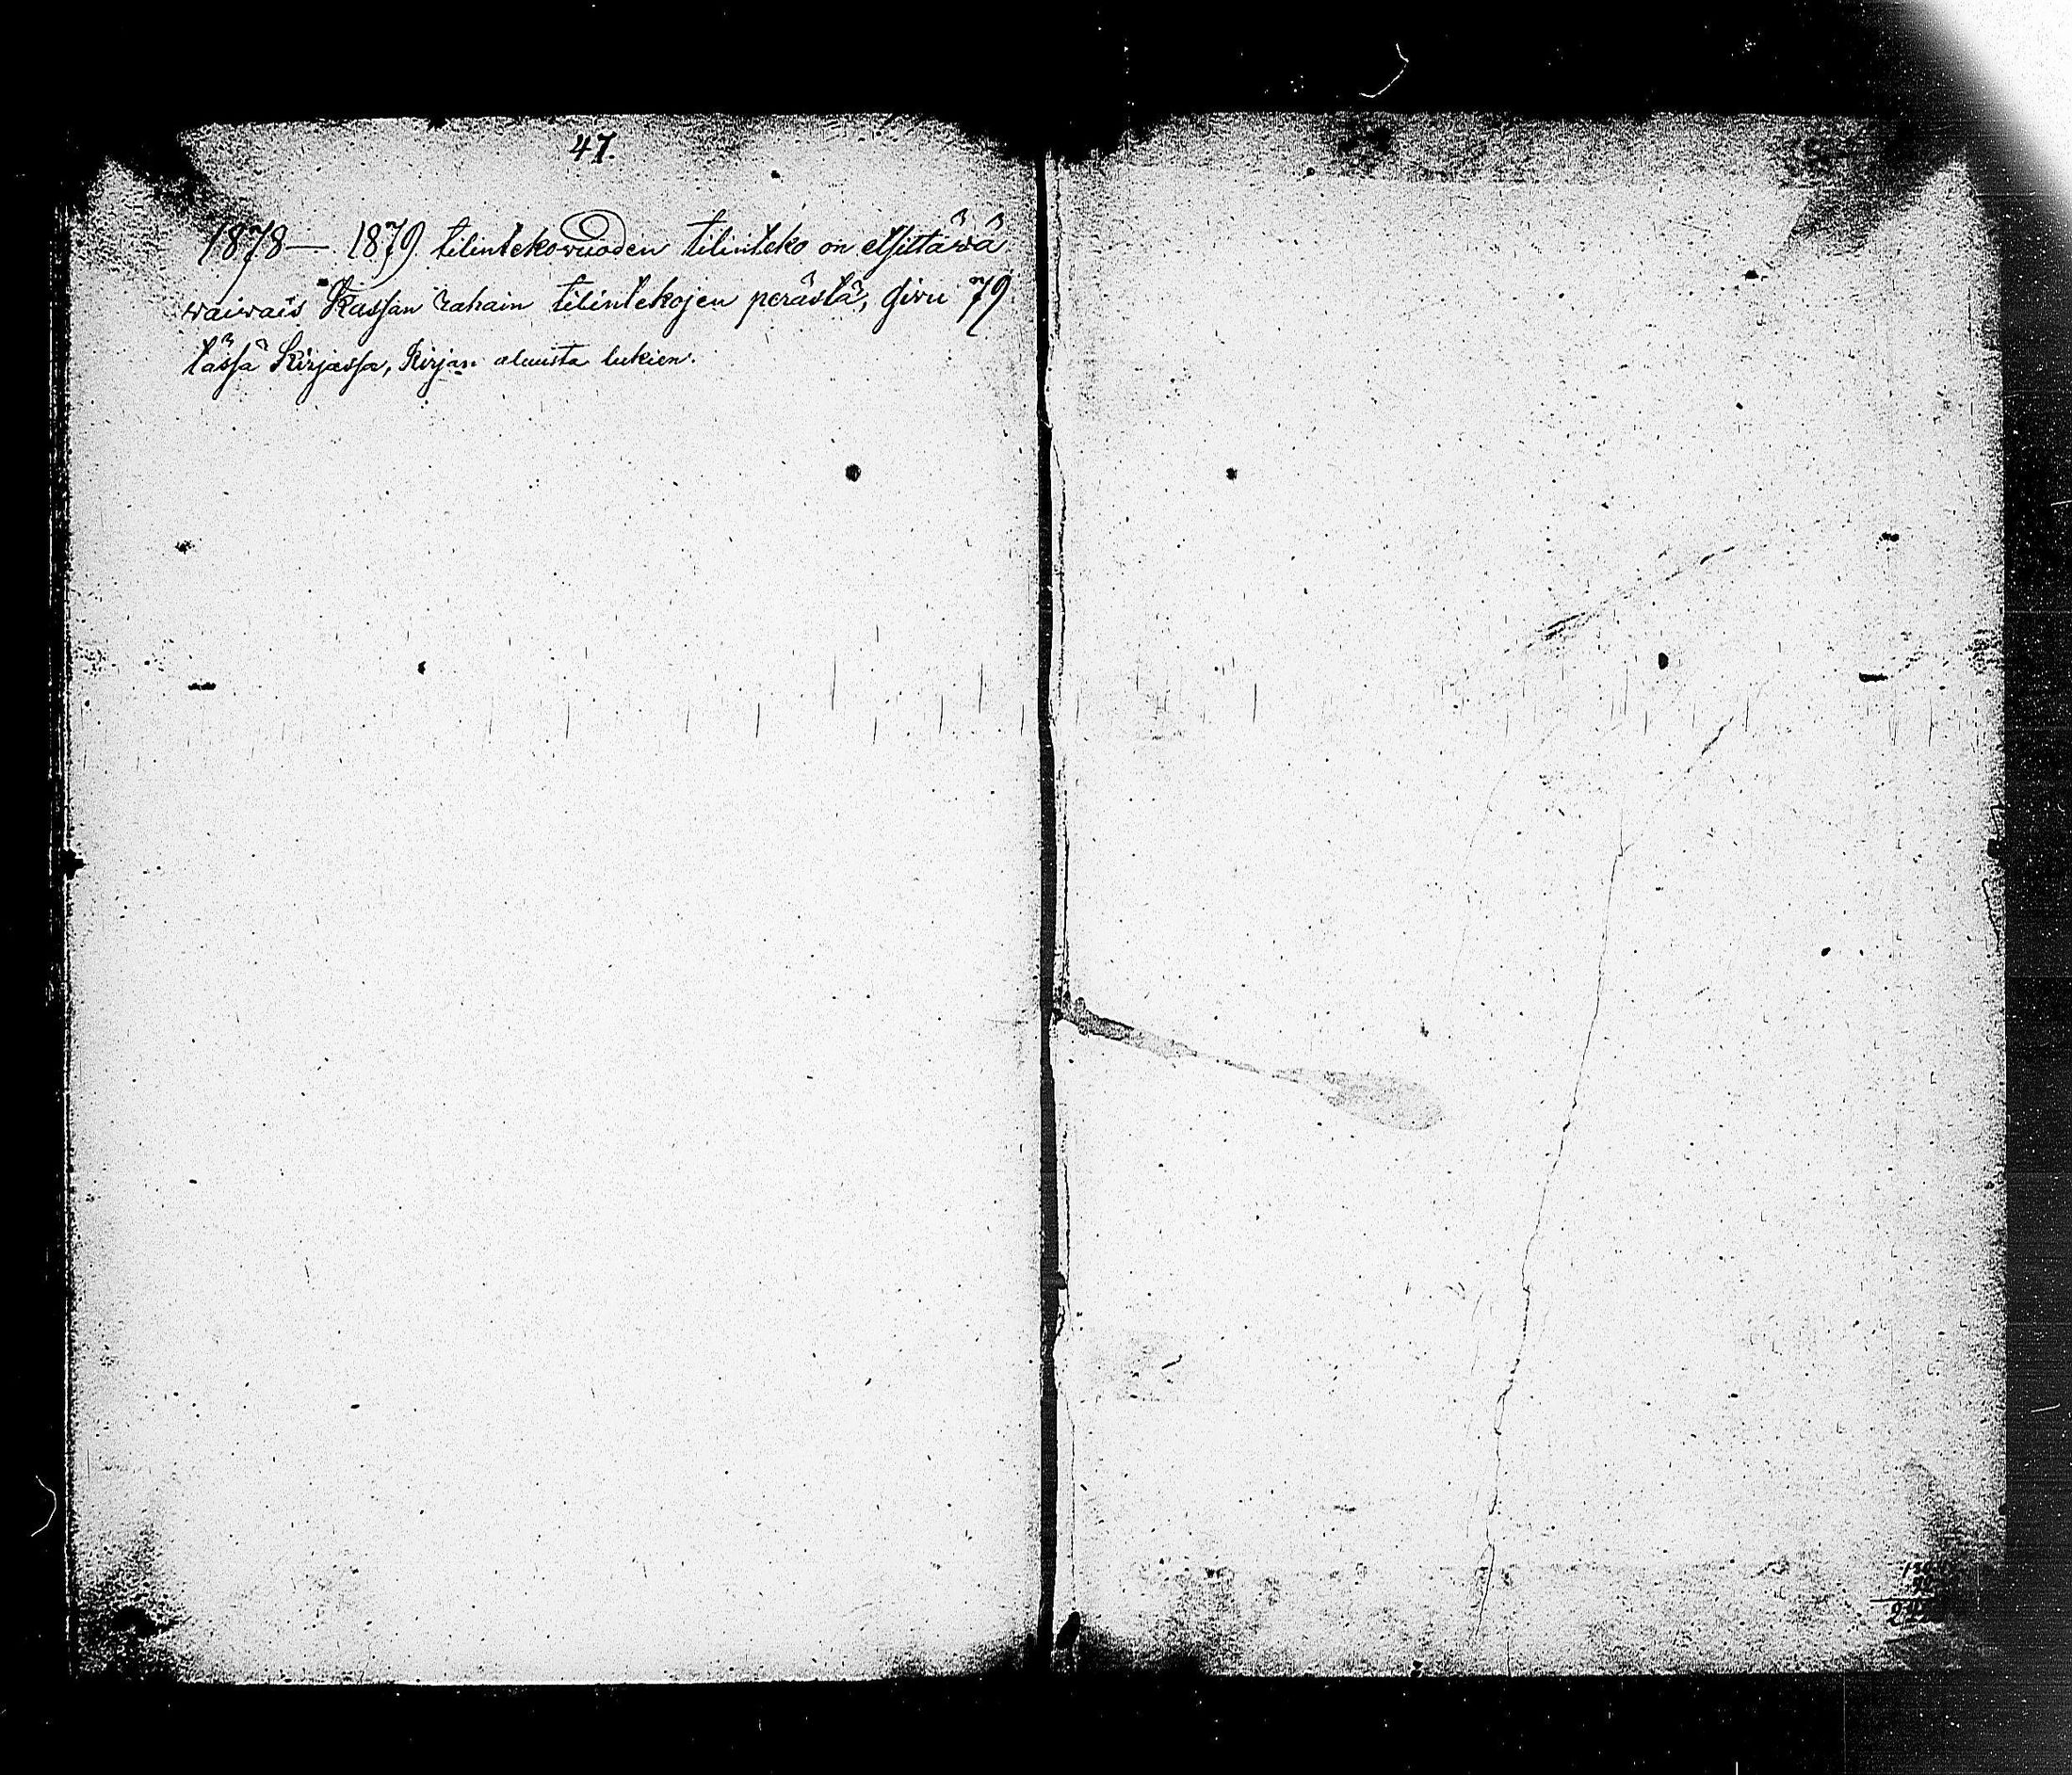 47.
1878 — 1879 tilintekowuoden tilinteko on etsittäwä
waiwais Kassan rahain tilintekojen perästä, Siwu 79
tässä Kirjassa, Kirjan alausta lukien.